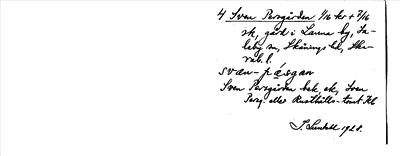 4 Sven Persgården 4/16 kr + 7/16
sk, gård i Lanna by, Sa-
leby sn, Skånings hd, Ska-
rab. l.
svæn-pæsgan
Sven Persgården bek. sk, Sven
Persg. eller Rusthålls-
S. Lundell 1928.